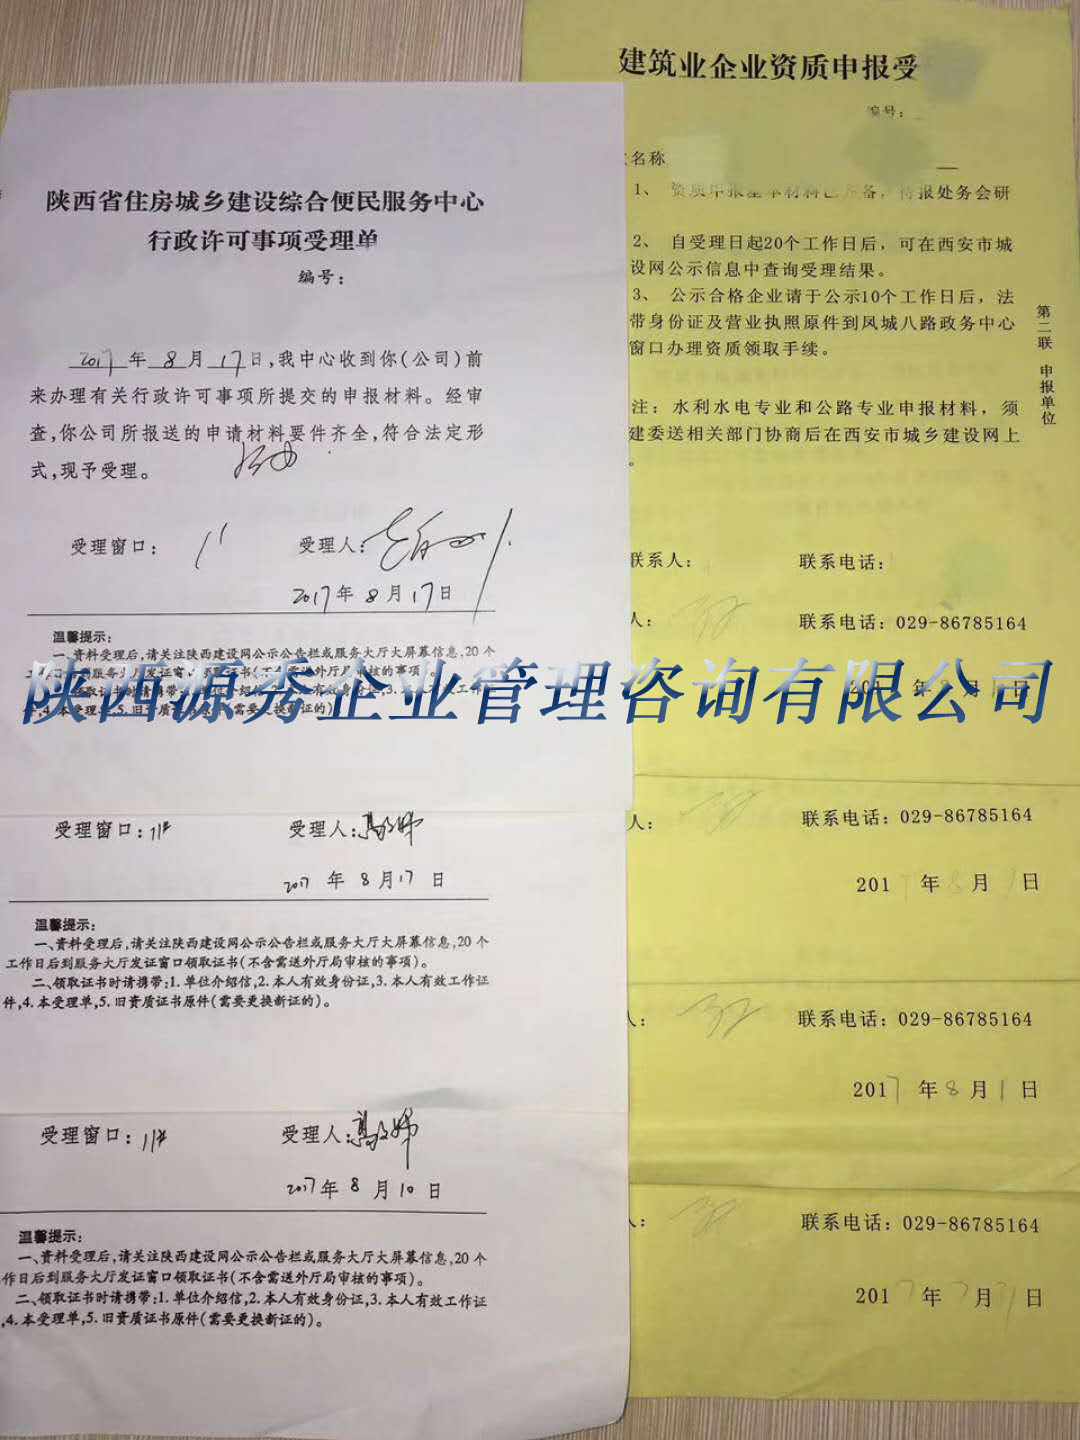 陕西省住房城乡建设综合便民服务中心
行政许可事项受理单
编号：
2017年8月17日,我中心收到你(公司)前
来办理有关行政许可事项所提交的申报材料。经审
查,你公司所报送的申请材料要件齐全,符合法定形
式,现予受理。
受理窗口：
受理人：
2017年8月17日
温馨提示：
一、资料受理后,请关注陕西建设网公示公告栏或服务大厅大屏幕信息,20个
陕西源秀企业管理咨询有限公司
受理窗口：11#
受理人：
2017年8月17日
温馨提示：
一、资料受理后,请关注陕西建设网公示公告栏或服务大厅大屏幕信息,20个
工作日后到服务大厅发证窗口领取证书(不含需送外厅局审核的事项)。
二、领取证书时请携带:1.单位介绍信,2.本人有效身份证,3.本人有效工作证
件,4.本受理单,5.旧资质证书原件(需要更换新证的)。
受理窗口：11#
受理人：
2017年8月10日
温馨提示：
一、资料受理后,请关注陕西建设网公示公告栏或服务大厅大屏幕信息,20个
作日后到服务大厅发证窗口领取证书(不含需送外厅局审核的事项)。
二、领取证书时请携带:1.单位介绍信,2.本人有效身份证,3.本人有效工作证
,4.本受理单,5.旧资质证书原件(需要更换新证的)。
建筑业企业资质申报受
编号：
名称
1、 资质申报基本材料已齐备，待报处务会研
2、 自受理日起20个工作日后，可在西安市城
设网公示信息中查询受理结果。
3、 公示合格企业请于公示10个工作日后，法
带身份证及营业执照原件到凤城八路政务中心
窗口办理资质领取手续。
注：水利水电专业和公路专业申报材料，须
建委送相关部门协商后在西安市城乡建设网上
。
第二联 申报单位
联系人：
联系电话：
人：
联系电话：029-86785164
人：
联系电话：029-86785164
2017年8月1日
人：
联系电话：029-86785164
2017年8月1日
人：
联系电话：029-86785164
2017年7月31日